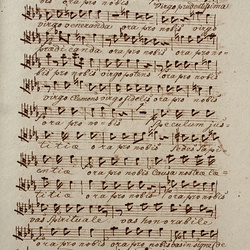 ora pro nobis Virgo prudentissima
virgo veneranda ora pro nobis virgo
praedicanda ora pro nobis ora pro no-
bis pro nobis virgo potens ora pro nobis
virgo clemens virgo fidelis ora pro nobis
ora pro nobis Speculum jus-
titiae ora pro nobis Sedes Sapi-
entiae ora pro nobis Causa nostrae lae-
titiae ora pro nobis ora pro nobis
vas spirituale vas honorabile
ora pro nobis ora pro nobis vas insigne de-